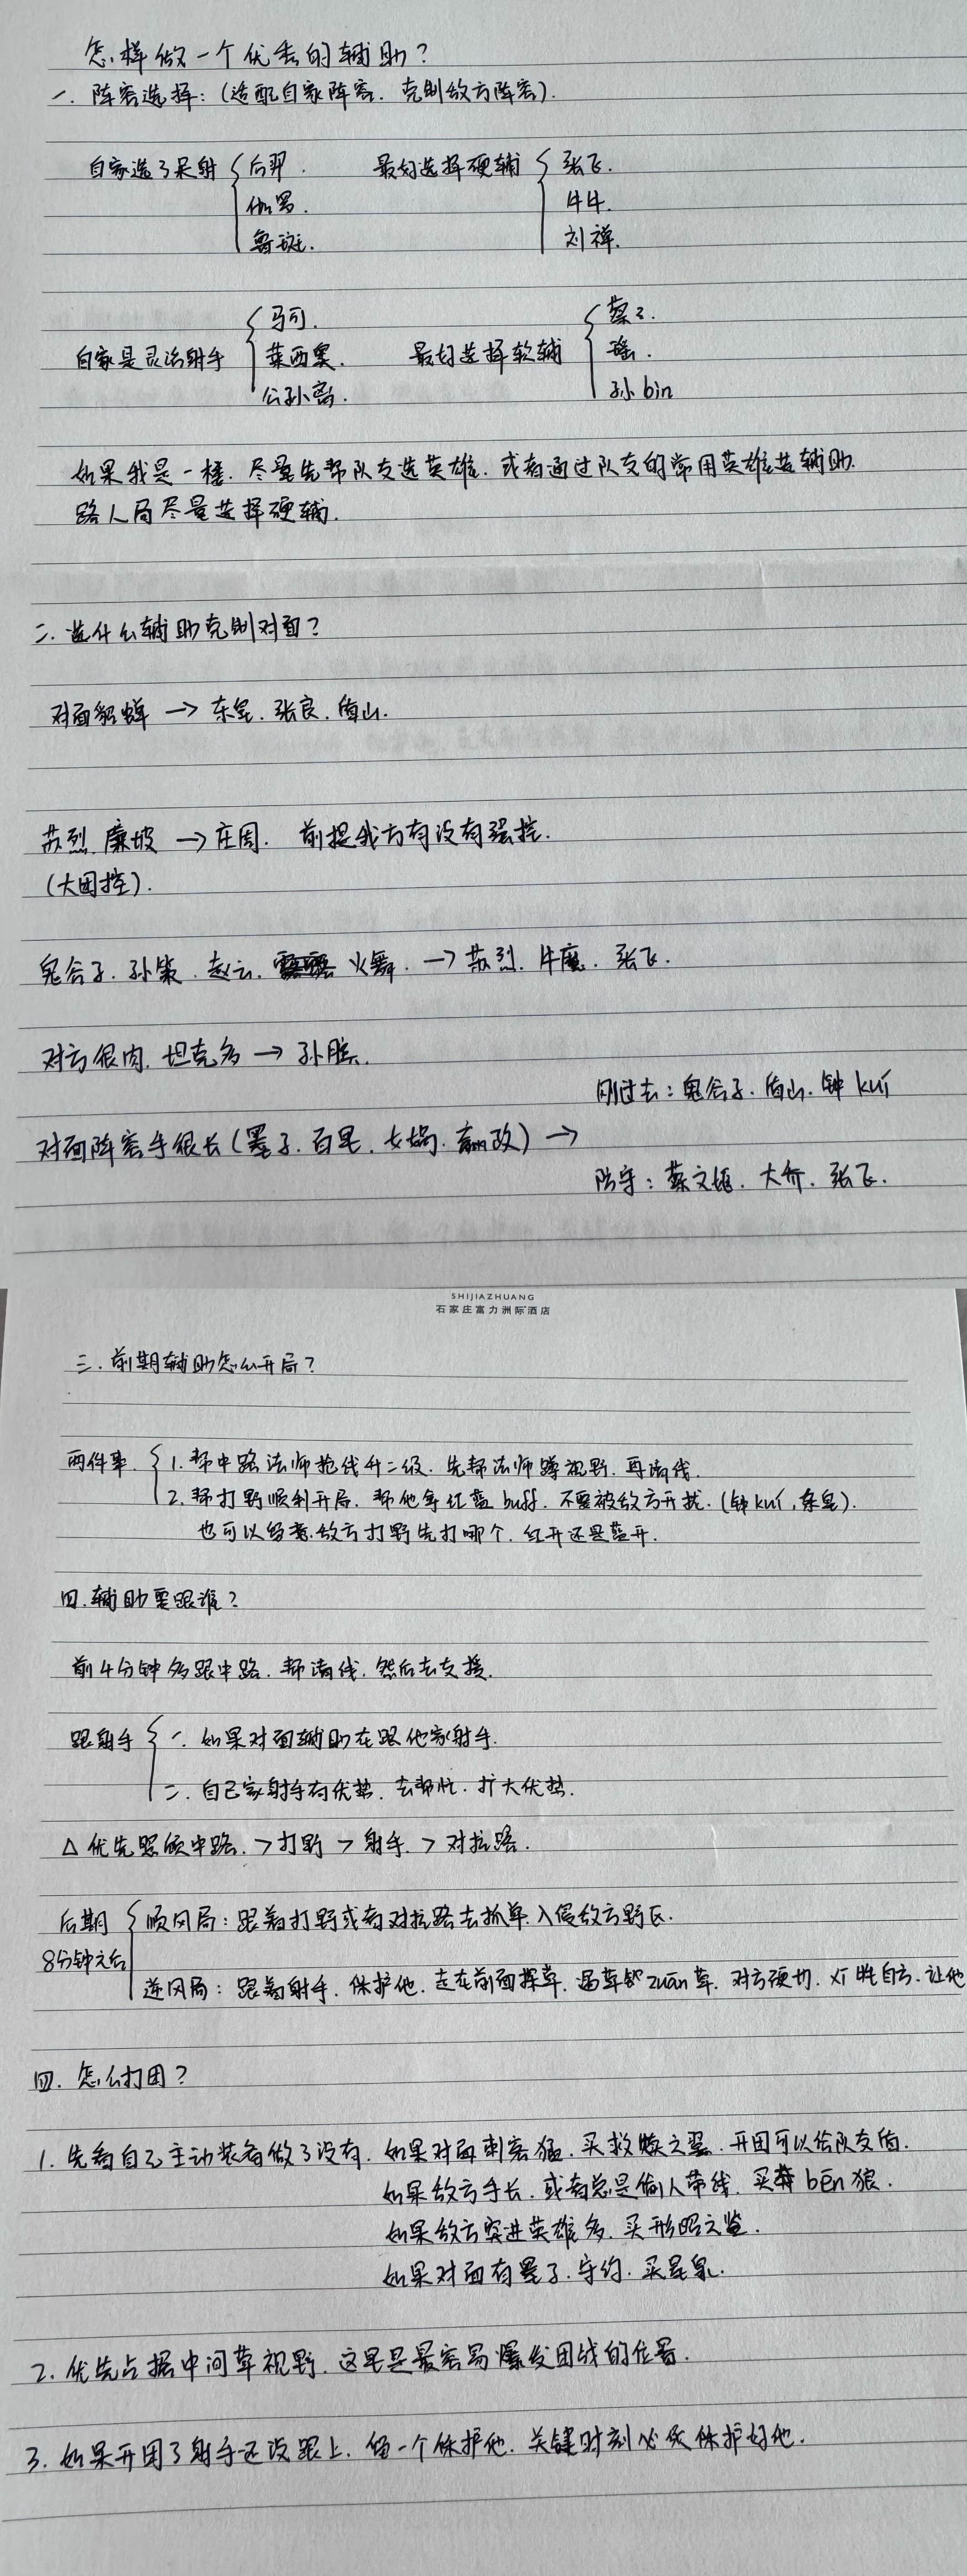 怎样做一个优秀的辅助?
一. 阵容选择:(适配自家阵容. 克制敌方阵容).
自家选了呆射 { 后羿. 最好选择硬辅 { 张飞.
伽罗. 牛牛.
鲁班. 刘禅.
马可. 蔡文.
自家是灵活射手 { 莱西奥. 最好选择软辅 { 瑶.
公孙离. 孙bin
如果我是一楼. 尽量先帮队友选英雄. 或者通过队友的常用英雄选辅助.
路人局尽量选择硬辅.
二. 选什么辅助克制对面?
对面貂蝉 → 东皇. 张良. 盾山.
苏烈 廉坡 → 庄周. 前提我方有没有强控.
(大团控).
鬼谷子. 孙策. 赵云. 火舞. → 苏烈. 牛魔. 张飞.
对方很肉. 坦克多 → 孙膑.
刚过去:鬼谷子. 盾山. 钟kuí
对面阵容手很长(墨子. 百里. 女娲. 嬴政) →
防守:蔡文姬. 大乔. 张飞.
SHIJIAZHUANG
石家庄富力洲际酒店
三. 前期辅助怎么开局?
两件事. { 1. 帮中路法师抢线升二级. 先帮法师蹲视野. 再清线.
2. 帮打野顺利开局. 帮他争红蓝buff. 不要被敌方干扰. (钟kuí, 东皇).
也可以留意敌方打野先打哪个. 红开还是蓝开.
四. 辅助要跟谁?
前4分钟多跟中路. 帮清线. 然后去支援.
跟射手 { 一. 如果对面辅助在跟他家射手.
二. 自己家射手有优势. 去帮忙. 扩大优势.
△ 优先照顾中路. > 打野 > 射手. > 对抗路.
后期 { 顺风局:跟着打野或者对抗路去抓单. 入侵敌方野区.
8分钟之后
逆风局:跟着射手. 保护他. 走在前面探草. 遇草即zuān草. 对方硬切. 牺牲自己. 让他
四. 怎么打团?
1. 先看自己主动装备做了没有. 如果对面刺客猛. 买救赎之翼. 开团可以给队友盾.
如果敌方手长. 或者总是偷人带线. 买 bēn狼.
如果敌方突进英雄多. 买形昭之鉴.
如果对面有墨子. 守约. 买星泉.
2. 优先占据中间草视野. 这里是最容易爆发团战的位置.
3. 如果开团了射手还没跟上. 留一个保护他. 关键时刻必须保护好他.